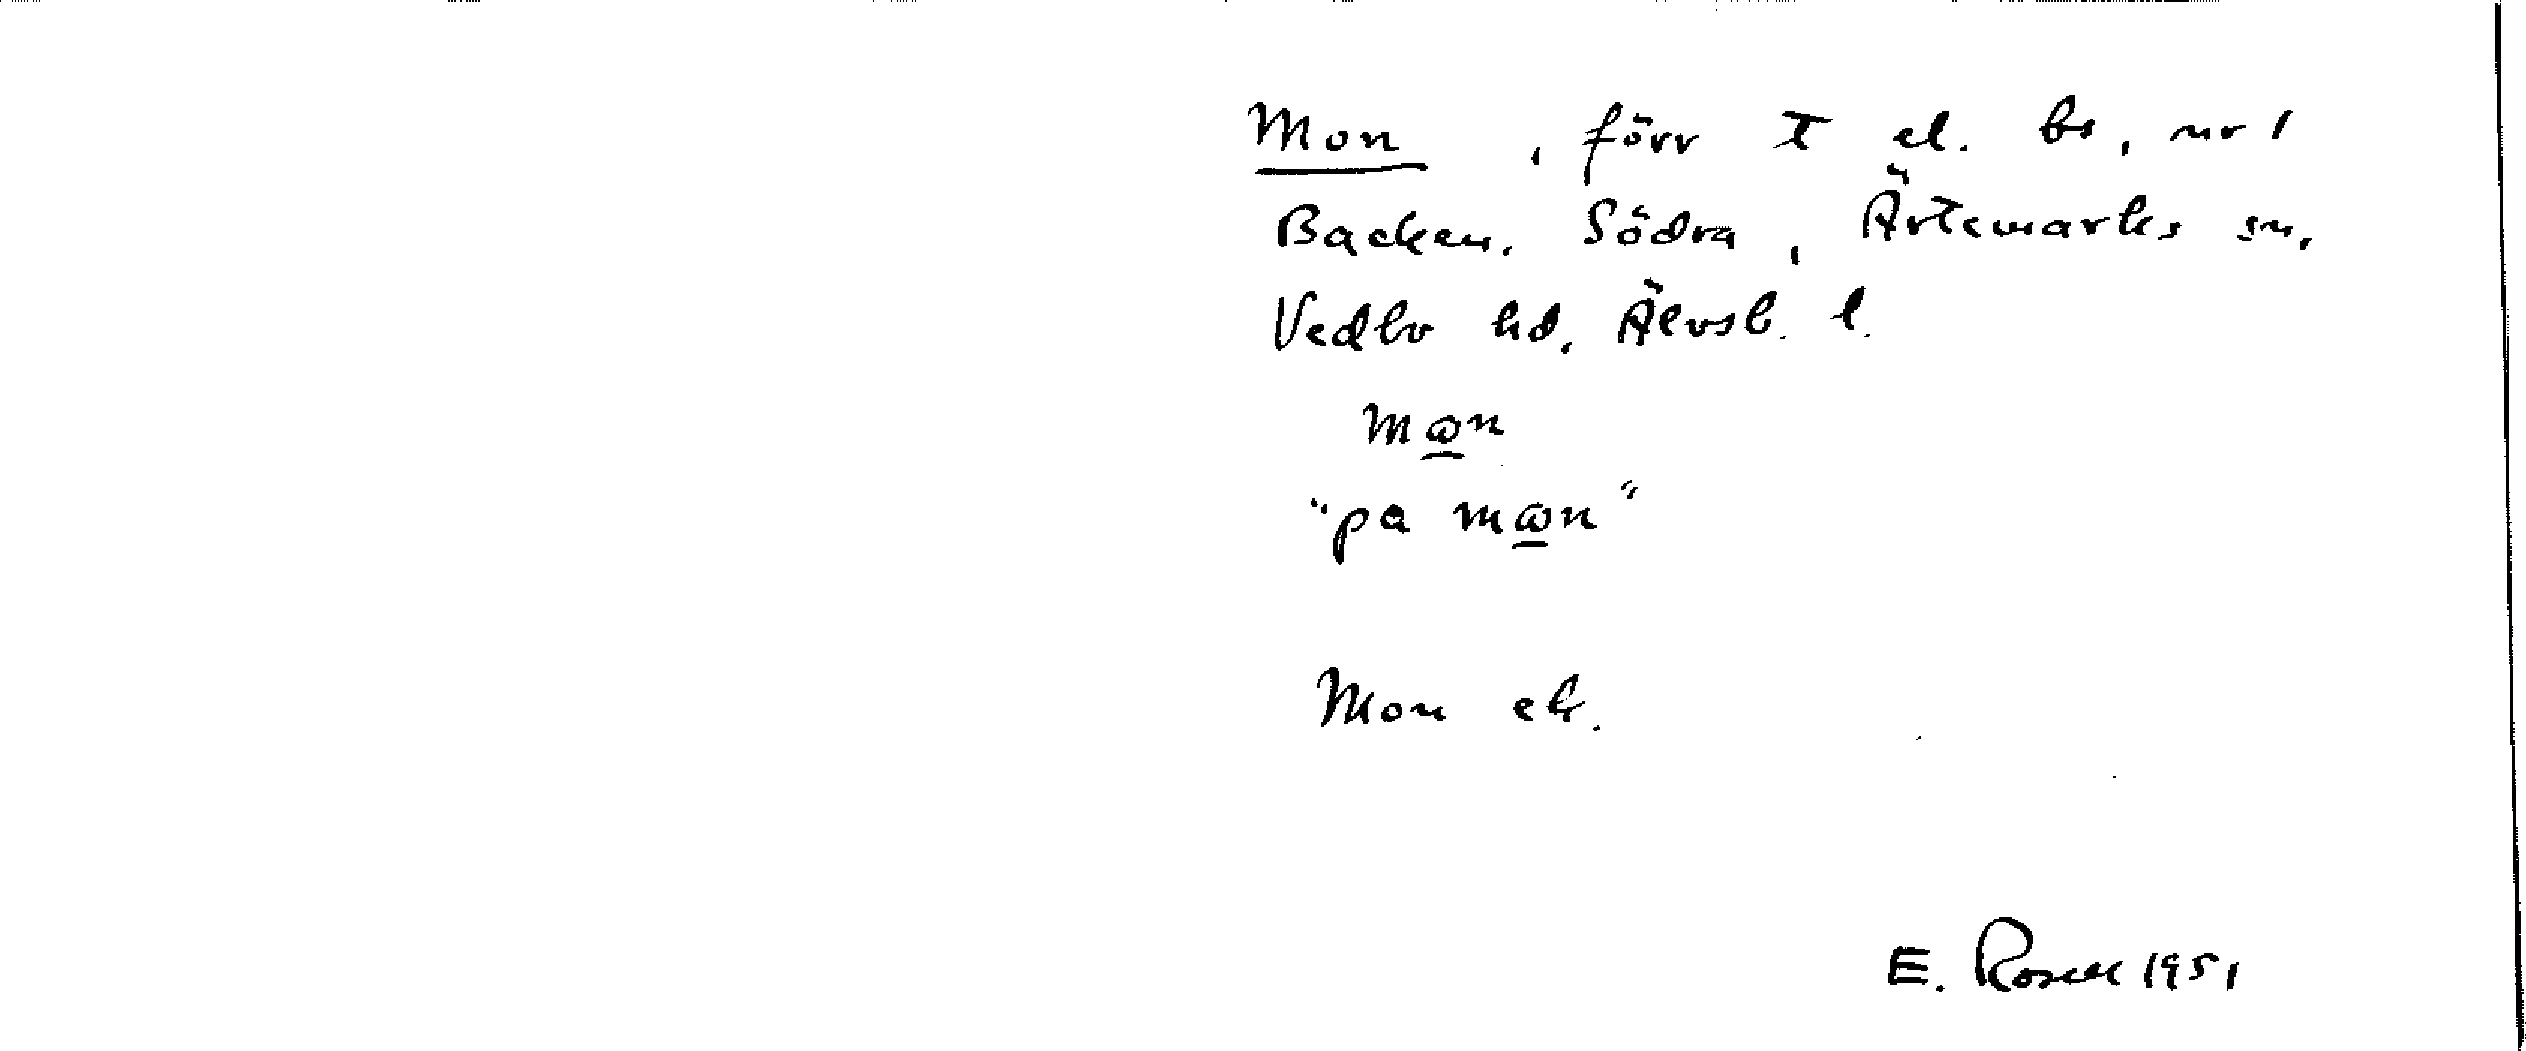 Mon, förr t el. bs, nr 1
Backen, Södra, Ärtemarks sn,
Vedbo hd, Älvsb. l.
mωn
"pa mωn"
Mon ek.
E. Rosell 1951